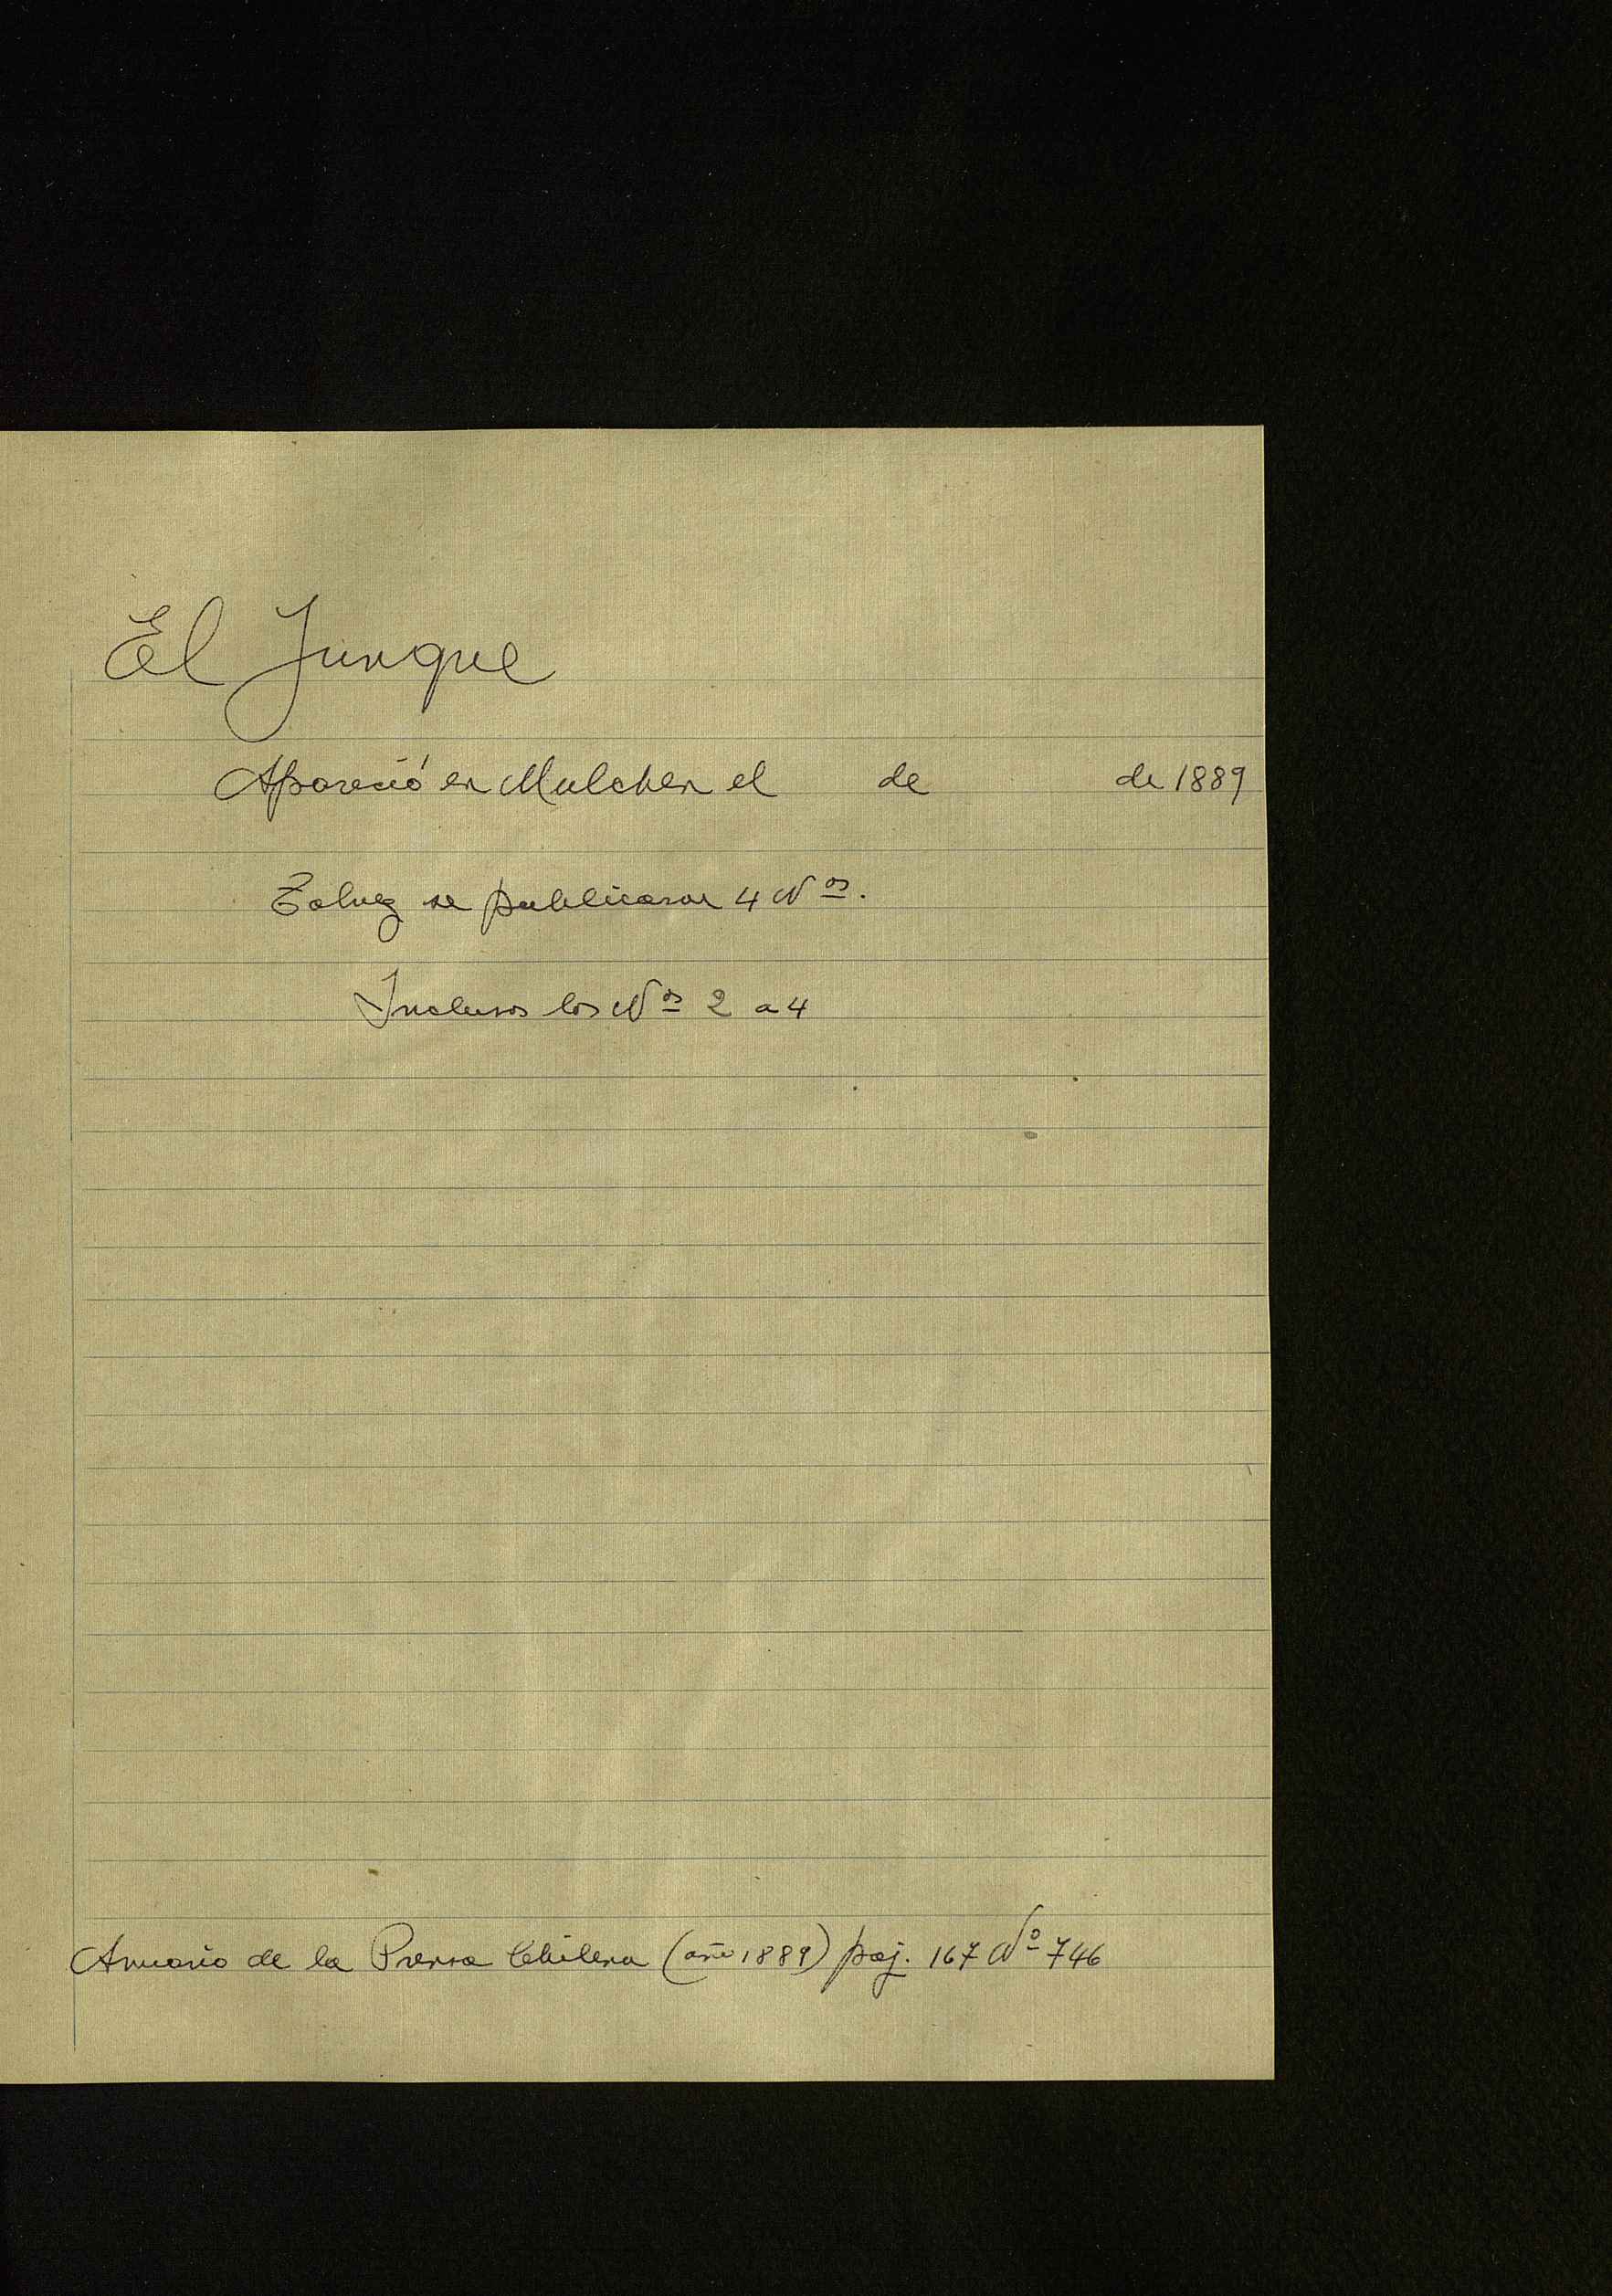 El Junque
Apareció en Mulchen el de de 1889
Talvez se publicaron 4 Nos.
Inclusos los Nos 2 a 4
Anuario de la Prensa Chilena (año 1889) paj. 167 No 746